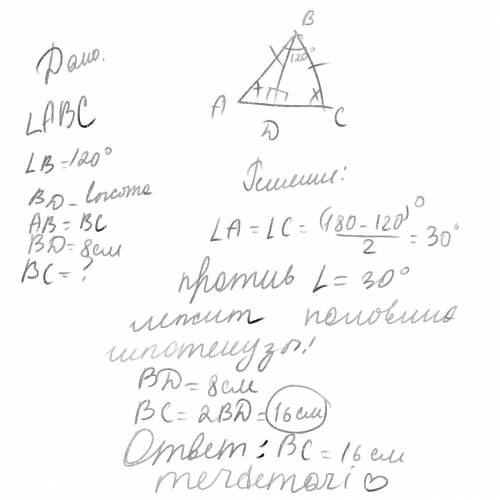 Дано:
LABC
LB=120°
BD-высота
AB=BC
BD=8см
BC=?
B
120°
A
D
C
Решение:
LA=LC=(180-120)°/2=30°
против L=30°
лежит половина
гипотенузы!
BD=8см
BC=2BD=16см
Ответ: BC=16см
merdemari ♡